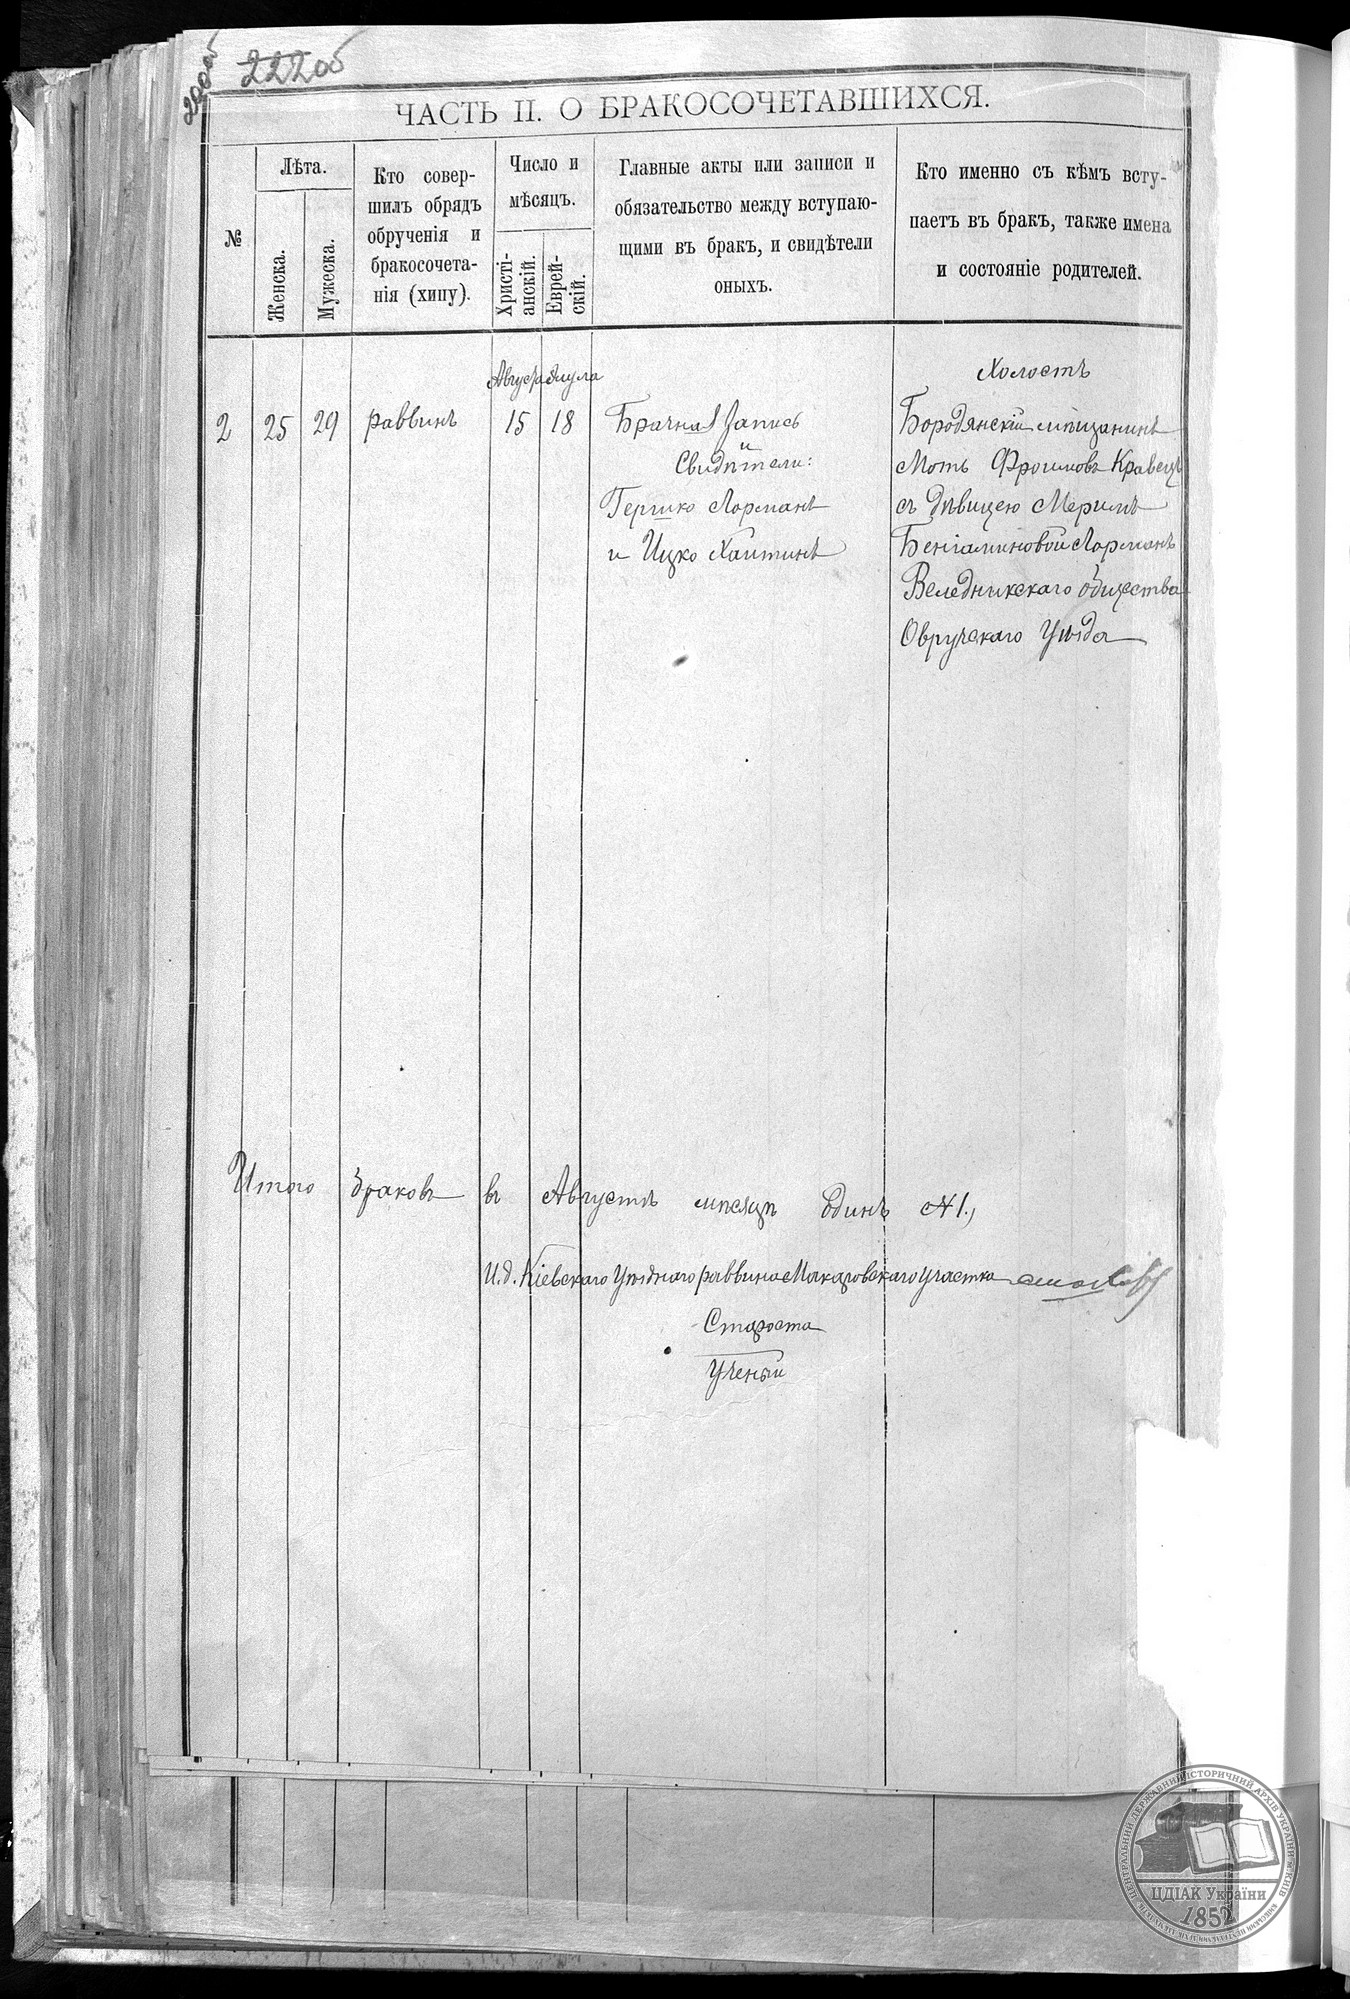 222об
200об
ЧАСТЬ II. О БРАКОСОЧЕТАВШИХСЯ.
№
Лѣта.
Женска.
Мужеска.
Кто совер-
шилъ обрядъ
обрученія и
бракосочета-
нія (хипу).
Число и
мѣсяцъ.
Христі-
анскій.
Еврей-
скій.
Главные акты или записи и
обязательство между вступаю-
щими въ бракъ, и свидѣтели
оныхъ.
Кто именно съ кѣмъ всту-
паетъ въ бракъ, также имена
и состояніе родителей.
Августа Элула
Холостъ
2 25 29 раввинъ 15 18 Брачная Запись Бородянскій мѣщанинъ
и
Свидѣтели: Моть Фроимовъ Кравецъ
Гершко Лорманъ съ дѣвицею Меримъ
и Ицко Хаитинъ Беніаминовой Лорманъ
Веледникскаго общества
Овручскаго Уѣзда
Итого браковъ въ Августѣ мѣсяцѣ одинъ №1.,
И.д. Кіевскаго Уѣзднаго раввина Макаровскаго участка
Староста
Ученый
ЦЕНТРАЛЬНИЙ ДЕРЖАВНИЙ ІСТОРИЧНИЙ АРХІВ УКРАЇНИ м. КИЇВ
ЦДІАК України
1852